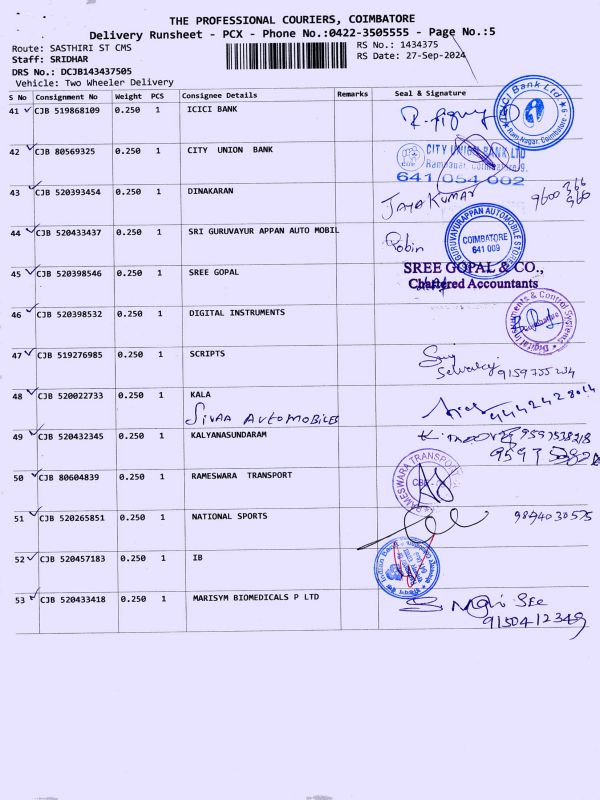 THE PROFESSIONAL COURIERS, COIMBATORE
Delivery Runsheet - PCX - Phone No.:0422-3505555 - Page No.:5
Route: SASTHIRI ST CMS RS No.: 1434375
Staff: SRIDHAR RS Date: 27-Sep-2024
DRS No.: DCJB143437505
Vehicle: Two Wheeler Delivery
S No Consignment No Weight PCS Consignee Details Remarks Seal & Signature
41 CJB 519868109 0.250 1 ICICI BANK
ICICI Bank Ltd. Ram Nagar, Coimbatore - 9
42 CJB 80569325 0.250 1 CITY UNION BANK CITY UNION BANK LTD
Ramnagar, Coimbatore-9.
641 054 002
43 CJB 520393454 0.250 1 DINAKARAN JAYAKUMAR 9600 366
960
44 CJB 520433437 0.250 1 SRI GURUVAYUR APPAN AUTO MOBIL Robin
GURUVAYURAPPAN AUTOMOBILE STORES
COIMBATORE
641 009
45 CJB 520398546 0.250 1 SREE GOPAL SREE GOPAL & CO.,
Chartered Accountants
46 CJB 520398532 0.250 1 DIGITAL INSTRUMENTS
Digital Instruments & Control Systems
47 CJB 519276985 0.250 1 SCRIPTS
Selvaraj 9159755234
48 CJB 520022733 0.250 1 KALA
SIVAA AUTOMOBILES
49 CJB 520432345 0.250 1 KALYANASUNDARAM 9597538218
50 CJB 80604839 0.250 1 RAMESWARA TRANSPORT RAMESWARA TRANSPORT
51 CJB 520265851 0.250 1 NATIONAL SPORTS 9844030575
52 CJB 520457183 0.250 1 IB Indian Bank
53 CJB 520433418 0.250 1 MARISYM BIOMEDICALS P LTD
9150412349